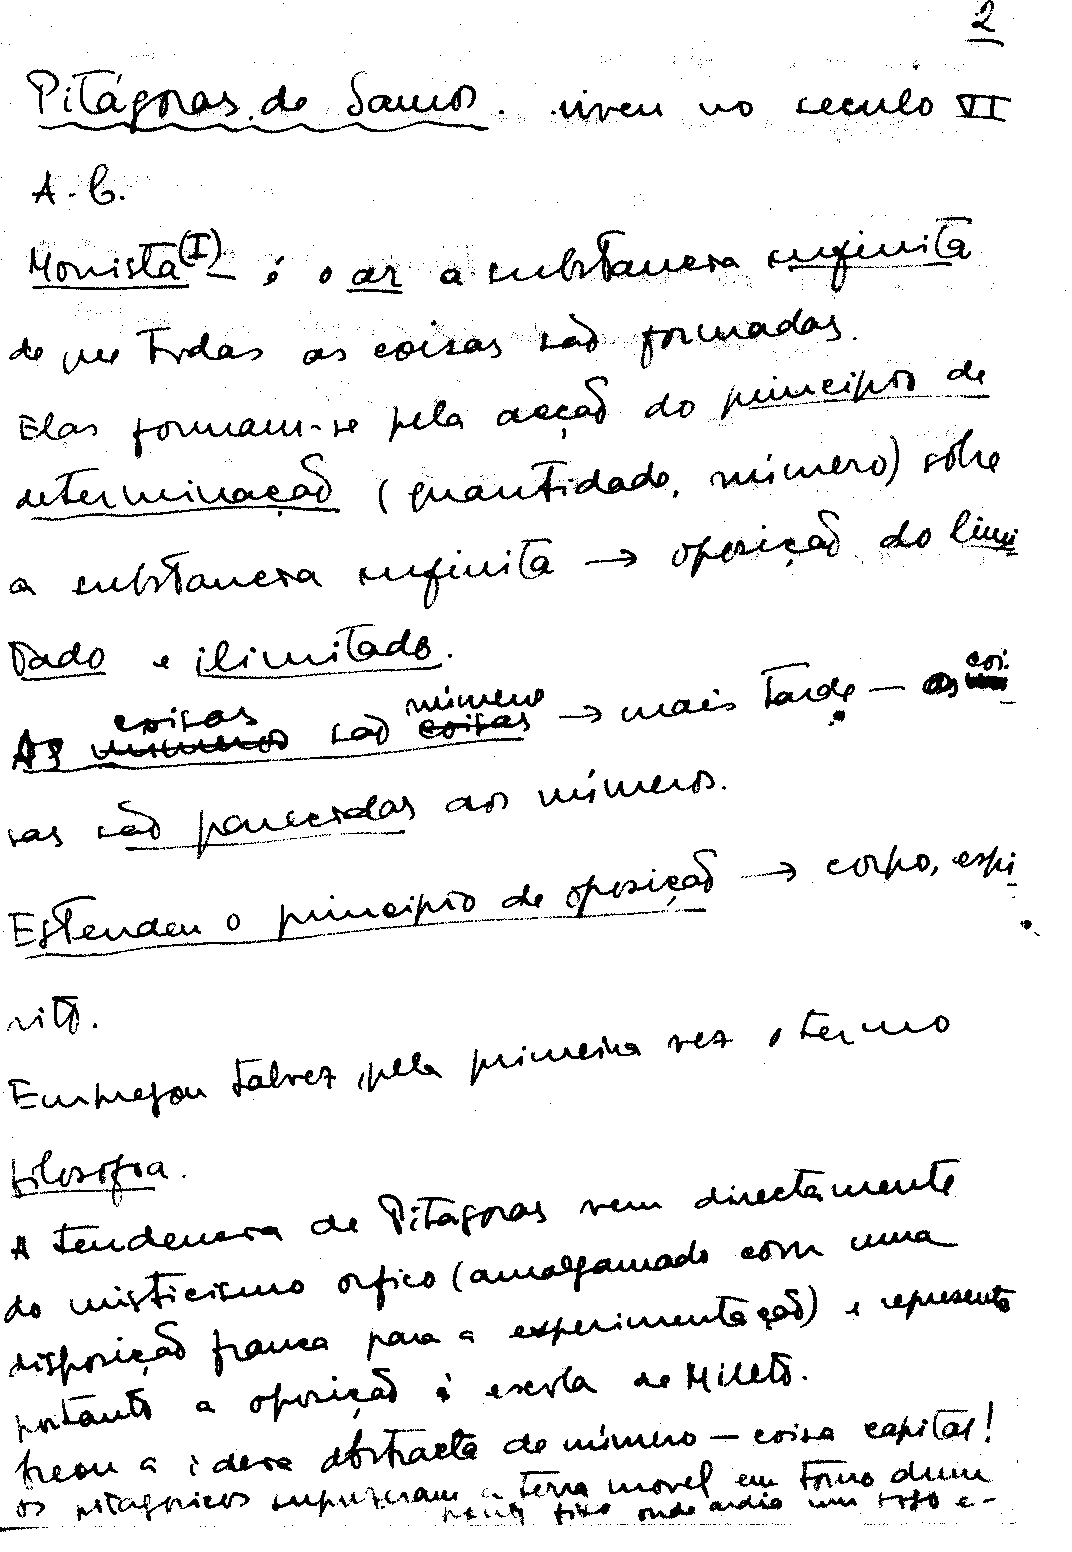 2
Pitágoras de Samos. viveu no seculo VI
A.C.
Monista (I) é o ar a substancia infinita
de que todas as coisas são formadas.
Elas formam-se pela acção do principio de
determinação (quantidade, número) sôbre
a substancia infinita → oposição do limi
tado e ilimitado.
As numeros coisas são coisas número → mais tarde – as coi
sas são parecidas aos números.
Estendeu o principio de oposição → corpo, espi
rito.
Empregou talvez, pela primeira vez o termo
filosofia.
A tendencia de Pitagoras vem directamente
do misticismo orfico (amalgamado com uma
disposição franca para a experimentação) e representa
portanto a oposição á escola de Mileto.
Creou a ideia abstracta de número – coisa capital!
os pitagoricos supuzeram a terra movel em torno dum
ponto fixo onde ardia um fogo e-